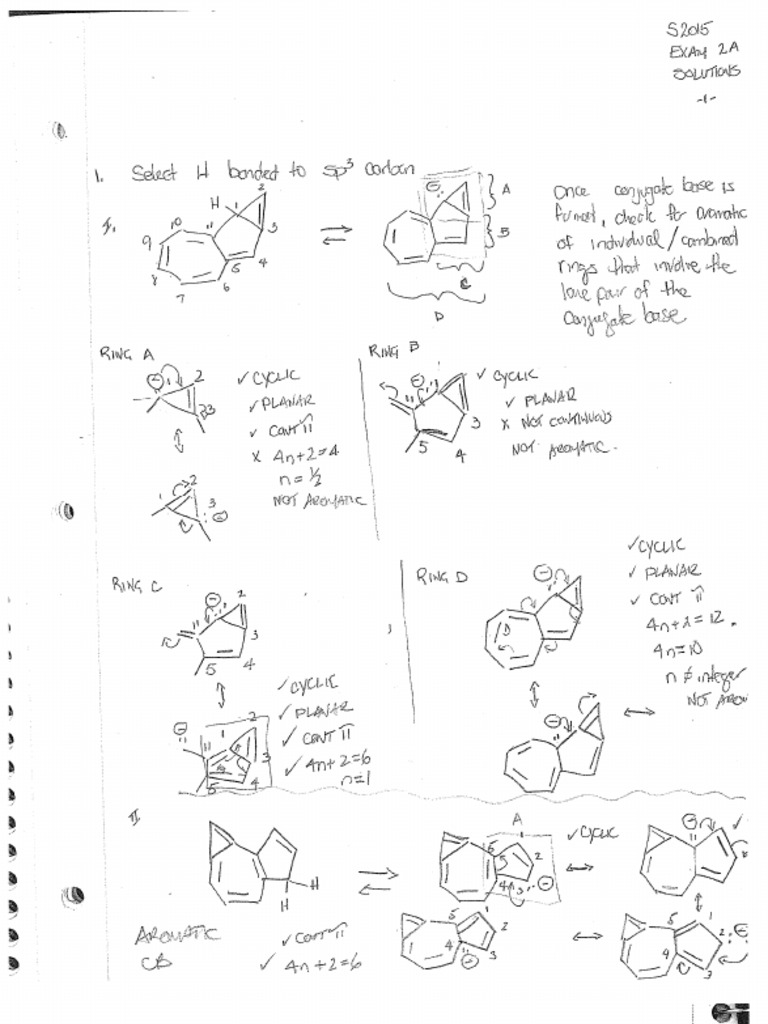 S2015
EXAM 2A
SOLUTIONS
-1-
1. Select H bonded to sp³ carbon
I.
H
1
2
3
4
5
6
7
8
9
10
11
⇌
⊖
A
B
C
D
Once conjugate base is
formed, check for aromatic
of individual/combined
rings that involve the
lone pair of the
conjugate base
RING A
⊖
2
3
✓ CYCLIC
✓ PLANAR
✓ CONT π
x 4n+2=4
n=½
NOT AROMATIC
1
2
3
⊖
RING B
⊖
11
3
4
5
✓ CYCLIC
✓ PLANAR
x NOT CONTINUOUS
NOT AROMATIC.
RING C
⊖
11
2
3
4
5
⊖
11
1
2
3
4
5
✓ CYCLIC
✓ PLANAR
✓ CONT π
✓ 4n+2=6
n=1
RING D
⊖
⊖
✓ CYCLIC
✓ PLANAR
✓ CONT π
4n+2=12.
4n=10
n≠integer
NOT AROM
II
H
H
⇌
A
6
5
2
4
3
⊖
1
✓ CYCLIC
⊖
✓
AROMATIC
CB
✓ CONT π
✓ 4n+2=6
5
2
4
3
⊖
5
1
2
⊖
4
3